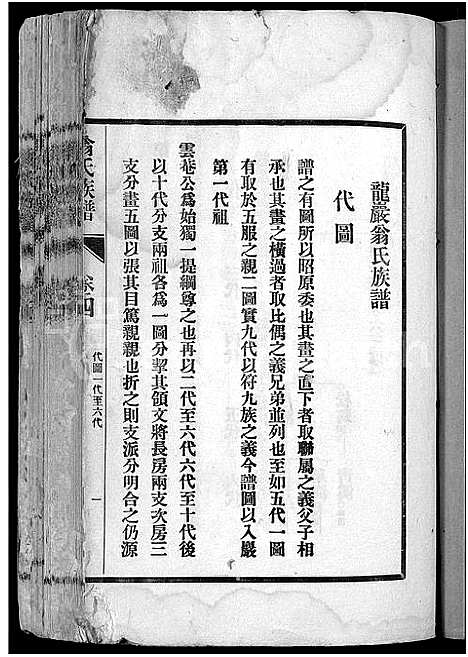 龍巖翁氏族譜
代圖
譜之有圖所以昭原委也其畫之直下者取聯屬之義父子相
承也其畫之橫過者取比偶之義兄弟並列也至如五代一圖
有取於五服之親二圖實九代以符九族之義今譜圖以入巖
第一代祖
雲菴公爲始獨一提綱尊之也再以二代至六代六代至十代後
以十代分支兩祖各爲一圖分挈其領文將長房兩支次房三
支分畫五圖以張其目篤親親也折之則支派分明合之仍源
翁氏族譜
卷四
代圖一代至六代
一